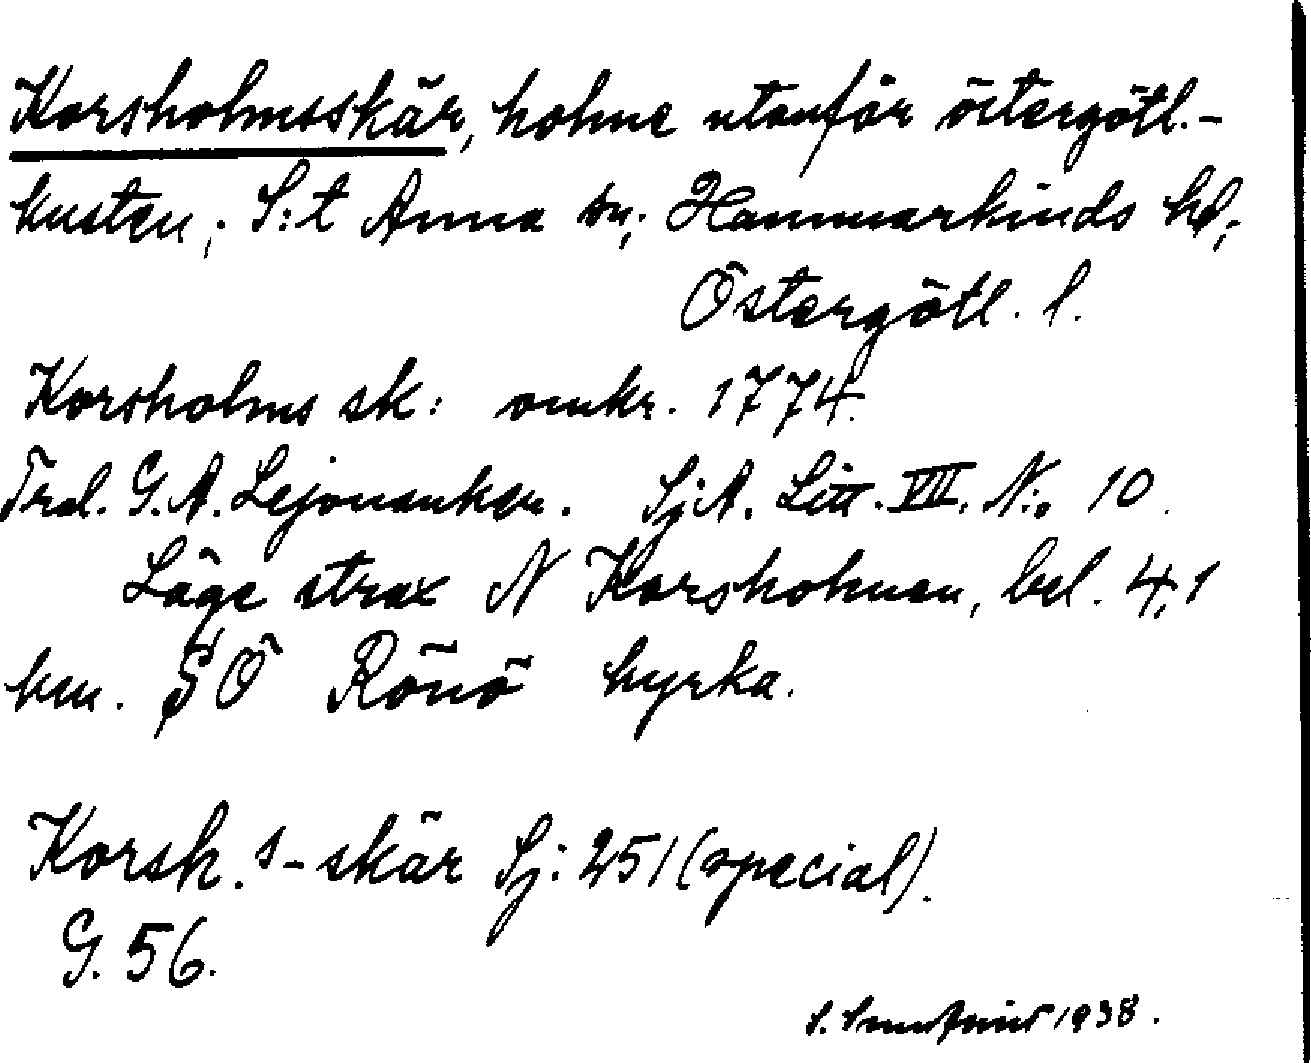 Korsholmsskär, holme utanför östergötl.-
kusten, S:t Anna sn, Hammarkinds hd,
Östergötl. l.
Korsholms sk: omkr. 1774.
Trol. G. A. Lejonanker. SjA. Litt. VIII. N:o 10.
Läge strax N Korsholmen, bel. 4,1
km. SÖ Rönö kyrka.
Korsh.s-skär Sj: 251 (special).
G. 56.
S. 1938.